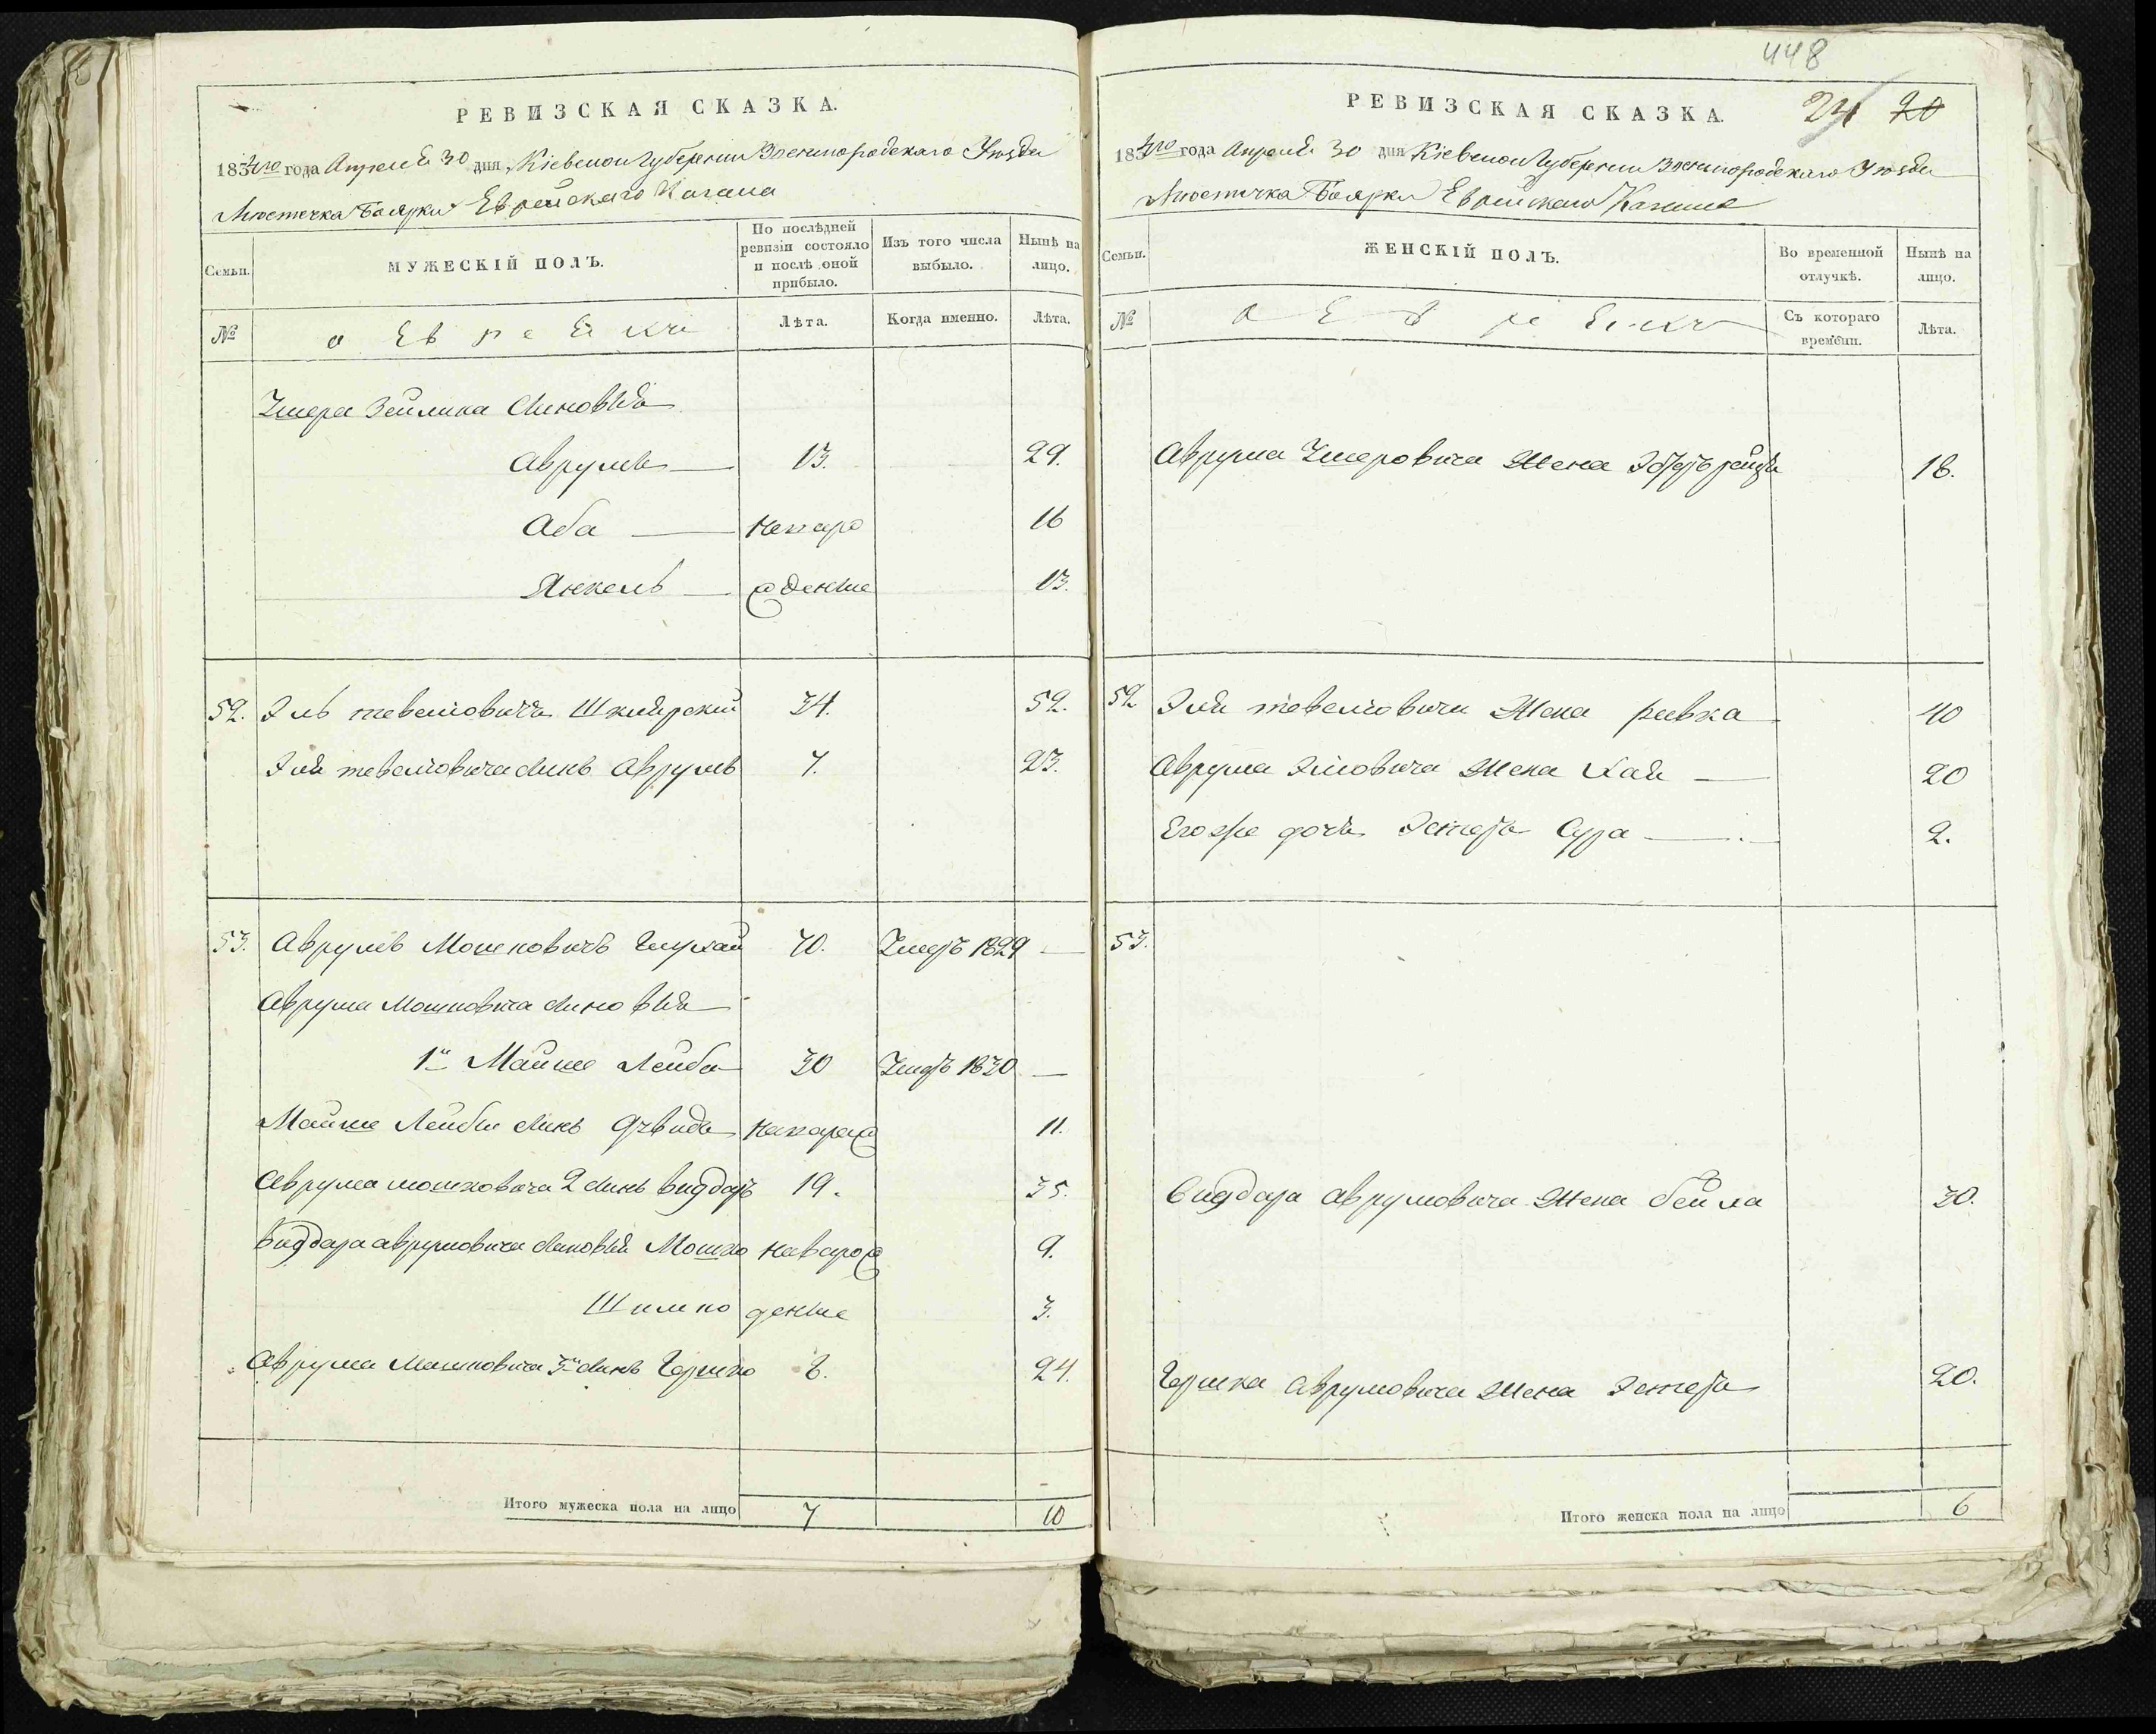 РЕВИЗСКАЯ СКАЗКА.
1834го года Апреля 30 дня Кіевской Губерніи Звенигородскаго Уезда
Местечка Боярки Еврейскаго Кагала
Семьи.
МУЖЕСКІЙ ПОЛЪ.
По послѣдней ревизіи состояло и послѣ оной прибыло.
Изъ того числа выбыло.
Нынѣ на лицо.
№
о Евреяхъ
Лѣта.
Когда именно.
Лѣта.
Зейлика Сыновья
Аврумъ 13. 29.
Аба новоро 16
Янкель жденные 13.
52. Эль Тевеліовичъ 34. 52.
Эля Тевелiовича Сынъ Аврумъ 7. 23.
53. Аврумъ Мошковичъ 70. Умеръ 1829
Аврума Мошковича Сыновья
1й Мойше Лейба 30 Умеръ 1830
Мойше Лейбы Сынъ новорож 11.
Аврума Мошковича 2 Сынъ 19. 35.
Аврумовича Сыновья Мошко новорож 9.
Шимко денные 3.
Аврума Мошковича 3й Сынъ Гершко 8. 24.
Итого мужеска пола на лицо 7 10
448
РЕВИЗСКАЯ СКАЗКА.
24 20
1834го года Апреля 30 дня Кіевской Губерніи Звенигородскаго Уезда
Местечка Боярки Еврейскаго Кагала
Семьи.
ЖЕНСКІЙ ПОЛЪ.
Во временной отлучкѣ.
Нынѣ на лицо.
№
о Еврейкахъ
Съ котораго времени.
Лѣта.
Аврума жена 18.
52 Эля Тевелiовича жена Ривка 40
Аврума Элiовича жена Хая 20
Его же дочь Эстеръ Сура 2.
53.
Аврумовича жена Бейла 30.
Гершка Аврумовича жена Эстеръ 20.
Итого женска пола на лицо 6